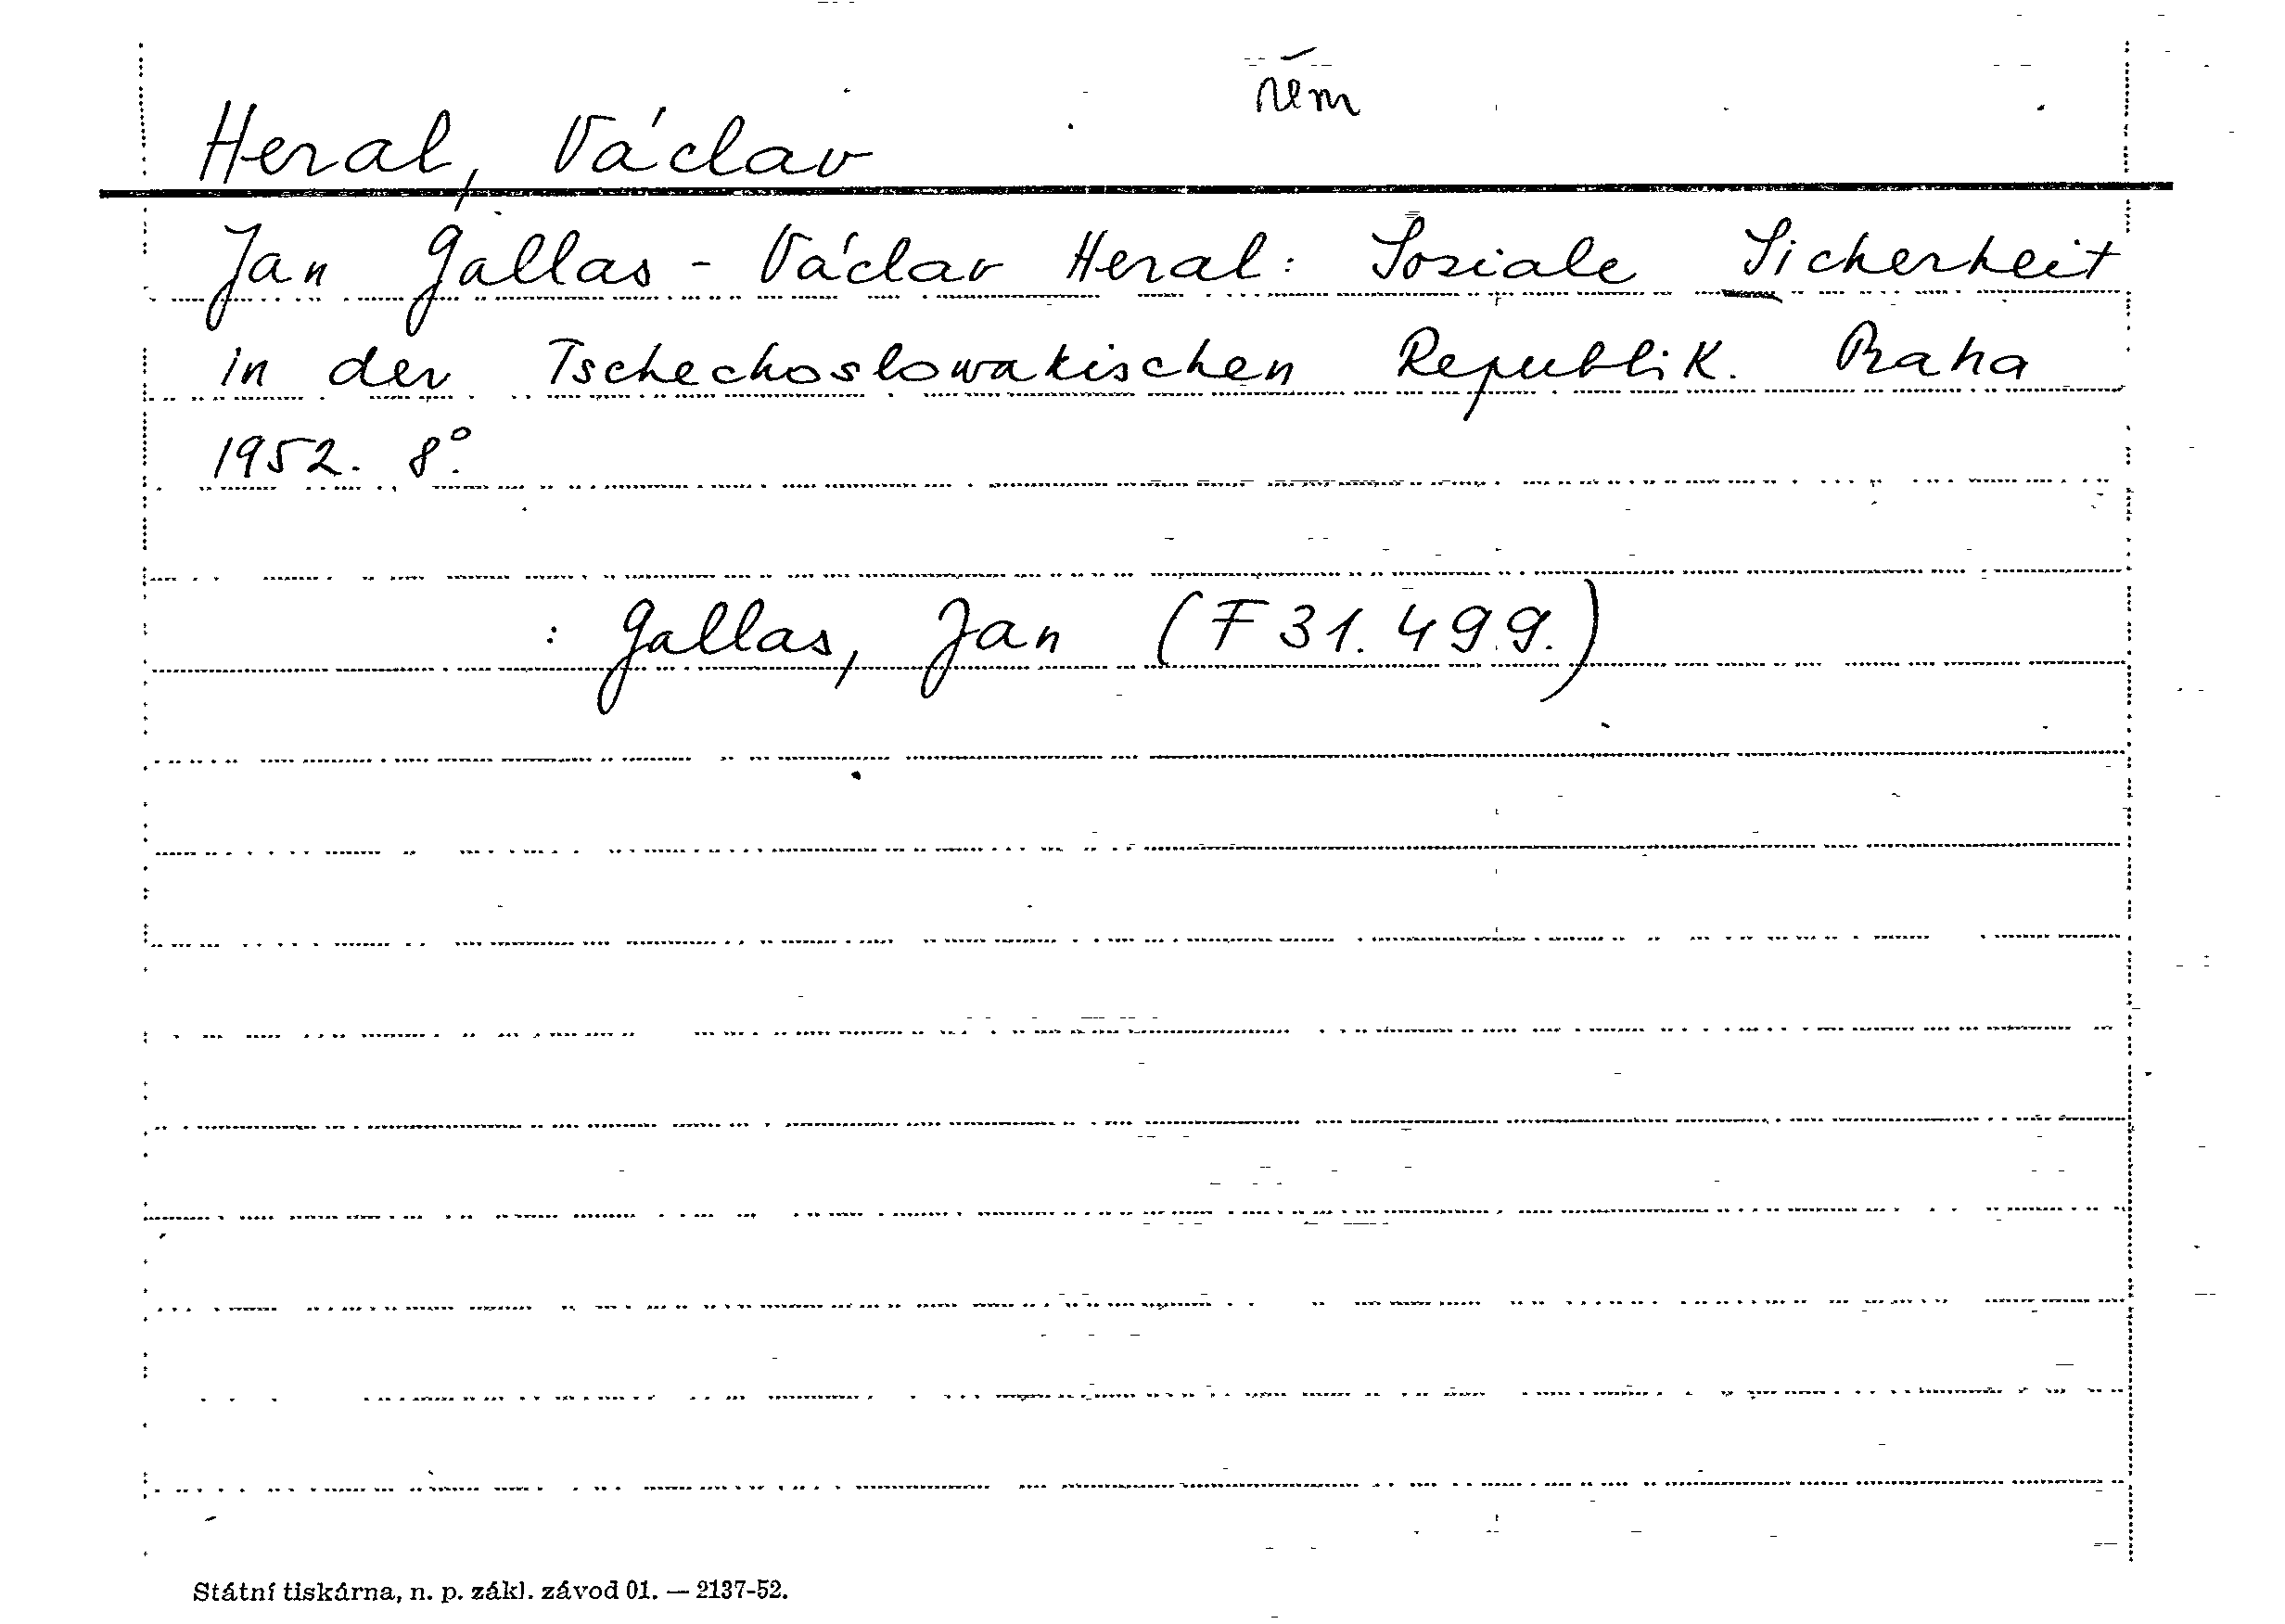 něm
Heral, Václav
Jan Gallas - Václav Heral: Soziale Sicherheit
in der Tschechoslowakischen Republik. Praha
1952. 8°.
: Gallas, Jan (F 31.499.)
Státní tiskárna, n. p. zákl. závod 01. — 2137-52.